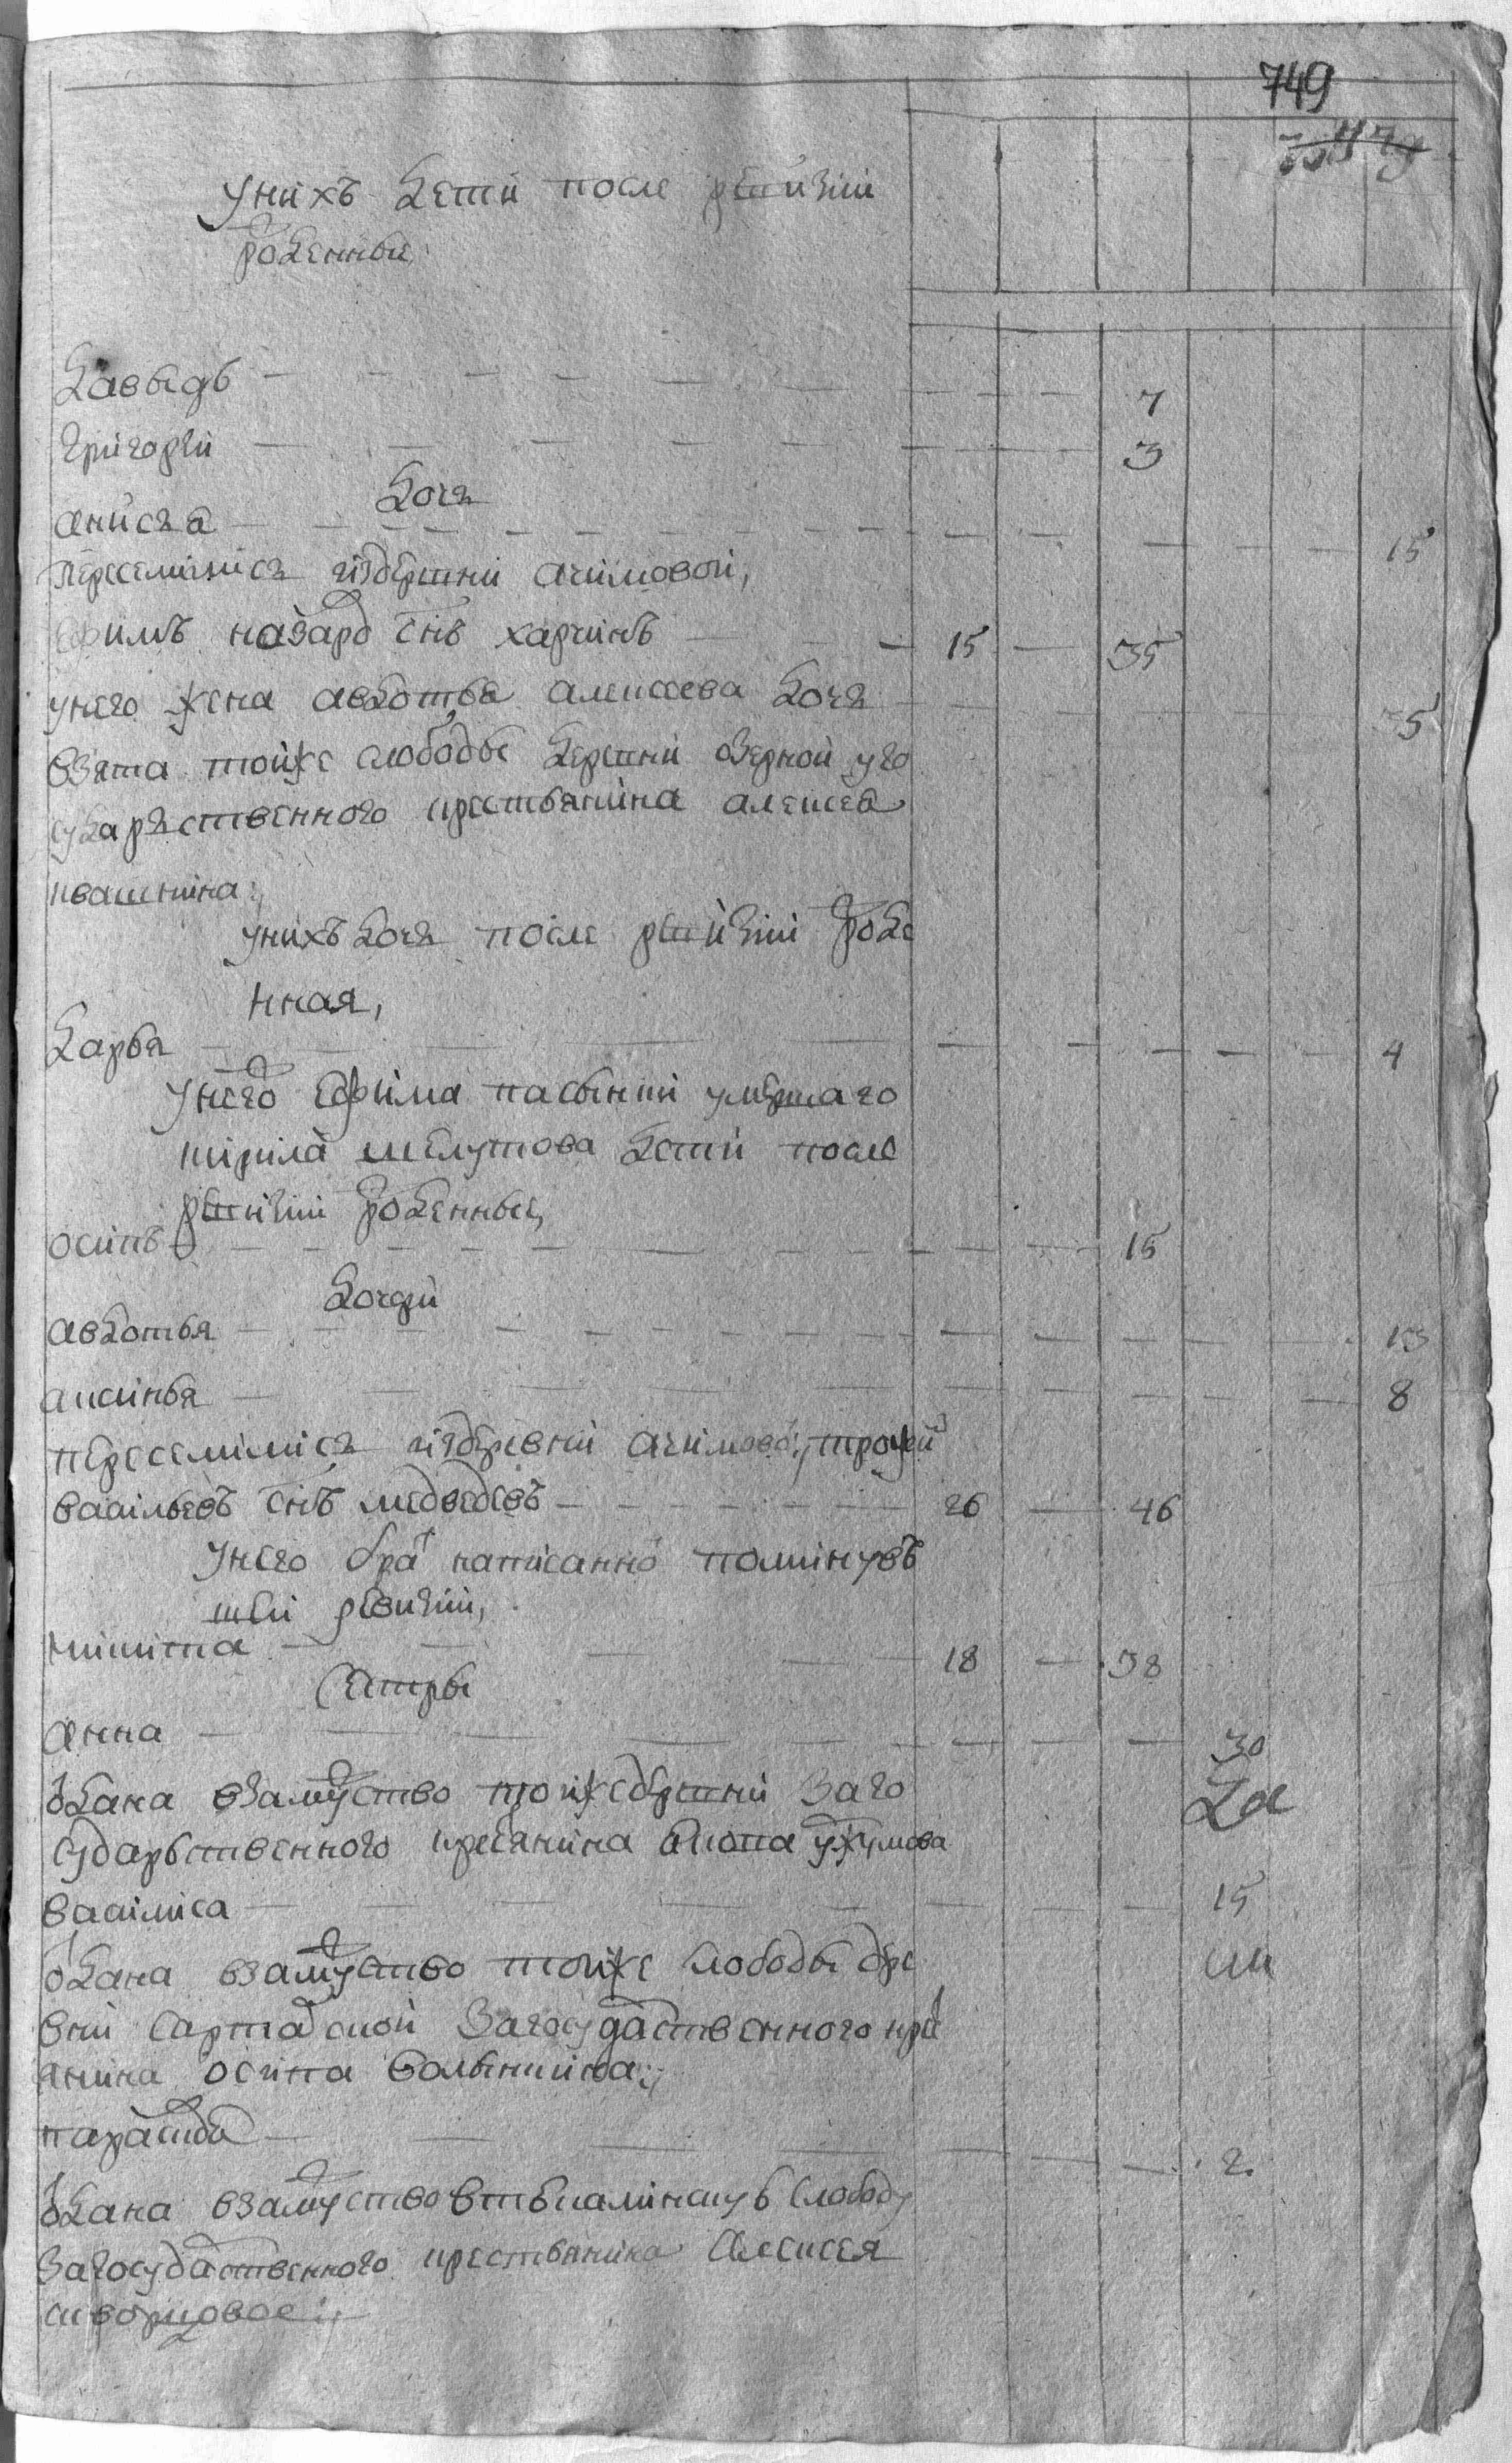 749
унихъ дети после ревизии
рожденные
давыдъ — 7
григорей — 3
доча
анисья — 15
переселились издеревни ачимовой,
ефимъ назаровъ снъ харчинъ — 15 — 35
унего жена авдотья алексеева доча — 35
взята тойже слободы деревни озерной у го
сударственного крестьянина алексея
квашнина:
унихъ доча после ревизии рожде
нная,
дарья — 4
унего ефима пасынки умершаго
кирила шелутова дети после
ревизии рожденные,
осипъ — 15
дочери
авдотья — 13
аксинья — 8
переселились издеревни ачимовой, трофей
васильевъ снъ медведевъ — 26 — 46
унего братъ написанной поминув
шей ревизии,
никита — 18 — 38
сестры
анна — 30
отдана взамужство тойже деревни заго
сударьственного кресьянина
василиса — 15
отдана взамужство тойже слободы дере
вни загосударственного крест
янина осипа
парасковья — 2
отдана взамужство слободу
загосударственного крестьянина алексея
скворцовое: